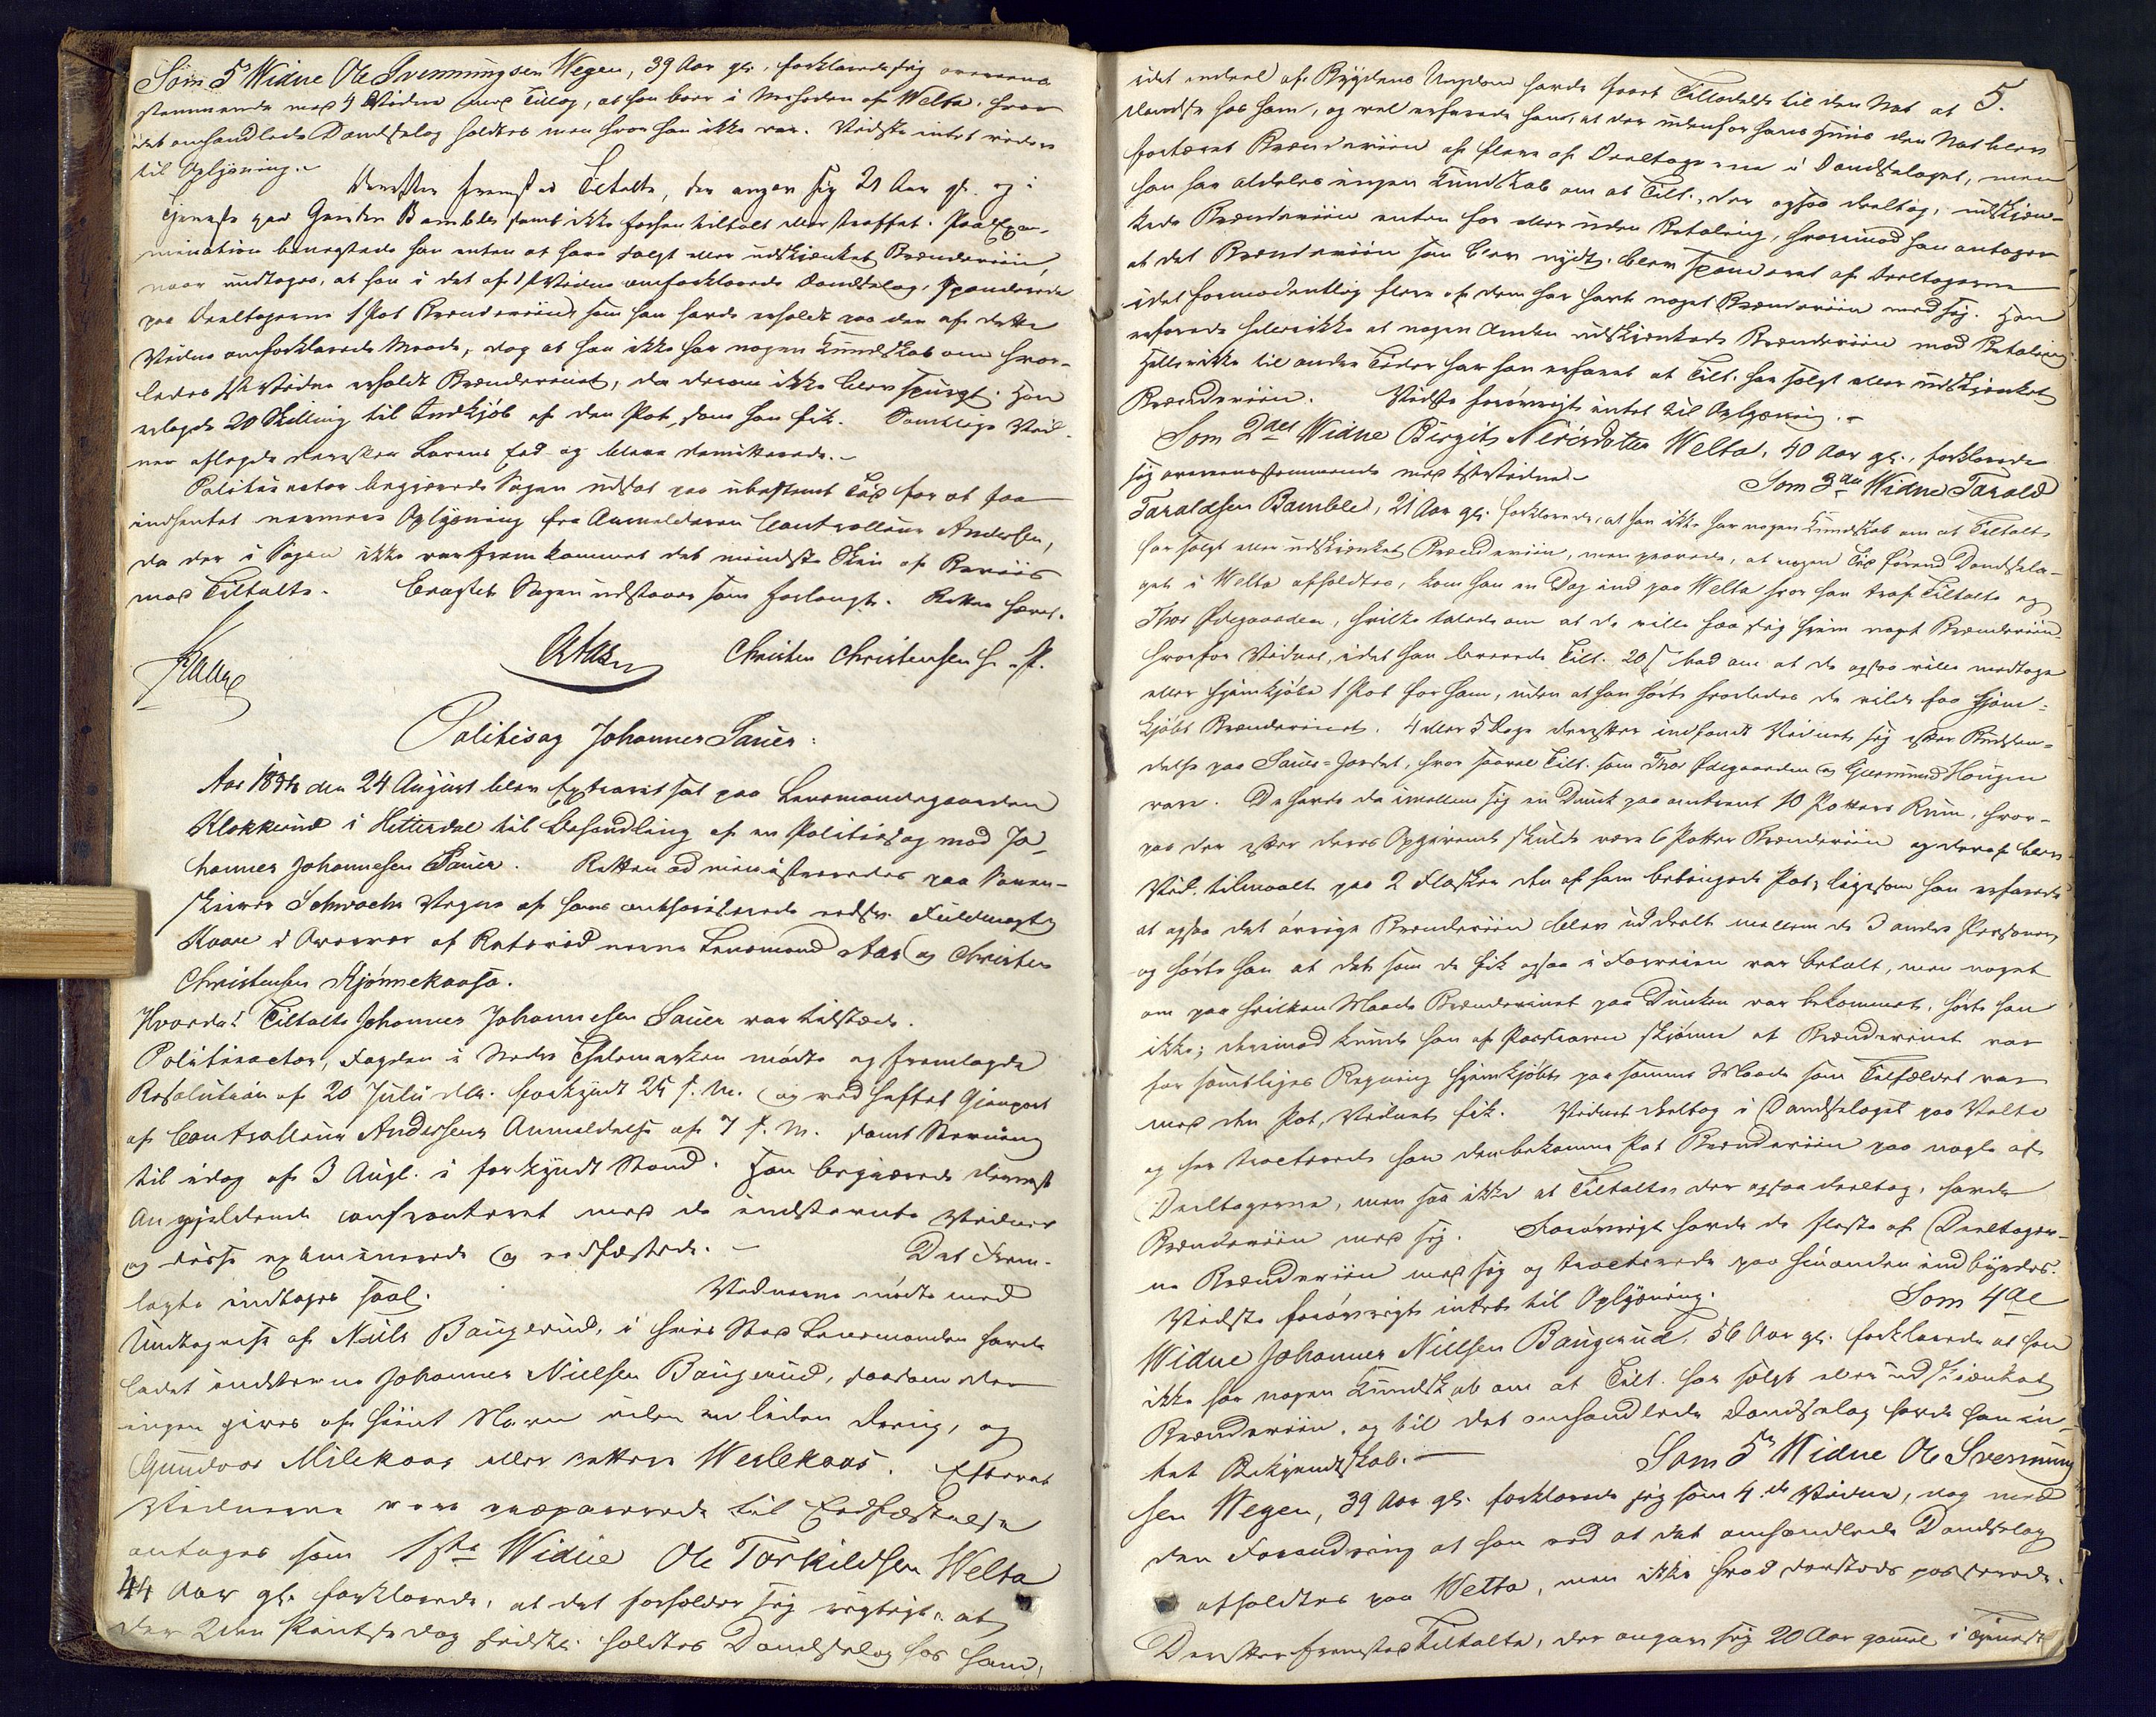 Som 5' Widne Ole Svenningsen Wegen, 39 Aar gl., forklarede sig overeens
stemmende med 4 Vidne med Tillæg, at han boer i Nærheden af Welta, hvor
det omhandlede Dandselag holdtes men hvor han ikke var. Vidste intet videre
til Oplysning.-
Derefter fremstod Tiltalte, der angav sig 21 Aar gl. og i
Tjeneste paa Gaarden Bamble samt ikke forhen tiltalt eller straffet. Paa Exa-
mination benægtede han enten at have solgt eller udskjænket Brændeviin,
naar undtages, at han i det af 1ste Vidne omforklarede Dandselag, spanderede
paa Deeltagerne 1 Pot Brændeviin som han havde erholdt paa den af dette
Vidne omforklarede Maade, dog at han ikke har nogen Kundskab om hvor-
ledes 1st Vidne erholdt Brændevinet, da derom ikke blev spurgt. Han
erlagde 20 Skilling til Indkjøb af den Pot, som han fik. Samtlige Vid-
ner aflagde derefter Lovens Eed og bleve demitterede.-
Politiactor begjærede Sagen udsat paa ubestemt Tid for at faa
indhentet nærmere Oplysning fra Anmelderen Controlleur Andersen,
da der i Sagen ikke var fremkommet det mindste Skin af Beviis
mod Tiltalte. Eragtet Sagen udstaaer som forlangt. Retten hævet.
Kaae
Christen Christensen
Politisag Johannes Sauer:
Aar 1854 den 24 August blev Extraret sat paa Lensmandsgaarden
Klokkerud i Hitterdal til Behandling af en Politisag mod Jo-
hannes Johannesen Sauer. Retten administreredes paa Soren-
skriver Schwachs Vegne af hans authoriserede edsv. Fuldmægtig
Kaae i Overvær af Retsvidnerne Lensmand Aas og Christen
Christensen Kjønnekaasa.
Hvorda! Tiltalte Johannes Johannesen Sauer var tilstæde.
Politiactor, Fogden i Nedre Thelemarken mødte og fremlagde
Resolution af 20 Juli d.A. forkyndt 25 s. M. og vedheftet Gjenpart
af Controlleur Andersens Anmeldelse af 7 s. M. samt Stevning
til idag af 3 Augt. i forkyndt Stand. Han begjærede dernest
Angjeldende confronteret med de indstevnte Vidner
og disse examinerede og eedfæstede.- Det Frem-
lagte indtages saal. Vidnerne mødte med
Undtagelse af Niels Baugerud, i hvis Sted Lensmanden havde
ladet indstevne Johannes Nielsen Baugerud, saasom der
ingen gives af hiint Navn uden en liden Dreng, og
Gundvor Milekaas eller rettere Weslekaas. Efterat
Vidnerne vare præparerede til Eedfæstelse
antoges som 1ste Widne Ole Torkildsen Welta
44 Aar gl. forklarede, at det forholder sig rigtigt, at
der 2den Pintsedag sidstl. holdtes Dandselag hos ham,
5.
idet endeel af Bygdens Ungdom havde faaet Tilladelse til den Nat at
dandse hos ham, og vel erfarede han, at der udenfor hans Huus den Nat blev
fortæret Brændeviin af flere af Deeltagerne i Dandselaget, men
han har aldeles ingen Kundskab om at Tilt., der ogsaa deeltog, udskjæn-
kede Brændeviin enten for eller uden Betaling, hvorimod han antager
at det Brændeviin som blev nydt, blev spanderet af Deeltagerne
idet formodentlig flere af dem har havt noget Brændeviin med sig. Han
erfarede hellerikke at nogen Anden udskjenkede Brændeviin mod Betaling
Hellerikke til andre Tider har han erfaret at Tilt. har solgt eller udskjenket
Brændeviin. Vidste forøvrigt intet til Oplysning.-
Som 2det Widne Birgit Neridsdatter Welta, 40 Aar gl., forklarede
sig overensstemmende med 1ste Vidne.- Som 3die Widne Tarald
Taraldsen Bamble, 21 Aar gl. forklarede, at han ikke har nogen Kundskab om at Tiltalte
har solgt eller udskjænket Brændeviin, men provede, at nogen Tid førend Dandsela-
get i Welta afholdtes, kom han en Dag ind paa Welta hvor han traf Tiltalte og
Thor Ødegaarden, hvilke talede om at de ville faa sig hjem noget Brændeviin
hvorfor Vidnet, idet han leverede Tilt. 20 s bad om at de ogsaa ville medtage
eller hjemkjøbe 1 Pot for ham, uden at han hørte hvorledes de vilde faa hjem-
kjøbt Brændevinet. 4 eller 5 Dage derefter indfandt Vidnet sig efter Budsen-
delse paa Sauer-Jordet, hvor saavel Tilt. som Thor Ødegaarden og Gjermund Haugen
vare. De havde da imellem sig en Dunk paa omtrent 10 Potters Rum, hvor-
paa der efter deres Opgivende skulde være 6 Potter Brændeviin og deraf blev
Vid. tilmaalt paa 2 Flasker den af ham betingede Pot, ligesom han erfarede
at ogsaa det øvrige Brændeviin blev uddeelt mellem de 3 andre Personer,
og hørte han at det som de fik ogsaa i Forveien var betalt, men noget
om paa hvilken Maade Brændevinet paa Dunken var bekommet, hørte han
ikke; derimod kunde han af Passiaren skjønne at Brændevinet var
for samtliges Regning hjemkjøbt paa samme Maade som Tilfældet var
med den Pot, Vidnet fik. Vidnet deeltog i Dandselaget paa Welta
og her tracterede han den bekomne Pot Brændeviin paa nogle af
Deeltagerne, men saa ikke at Tiltalte, der ogsaa deeltog, havde
Brændeviin med sig. Forøvrigt havde de fleste af Deeltager-
ne Brændeviin med sig og tracterede paa hinanden indbyrdes.
Vidste forøvrigt intet til Oplysning. Som 4de
Widne Johannes Nielsen Baugerud, 56 Aar gl. forklarede at han
ikke har nogen Kundskab om at Tilt. har solgt eller udskjænket
Brændeviin, og til det omhandlede Dandselag havde han in-
tet Bekjendtskab.- Som 5' Widne Ole Svenning
sen Wegen, 39 Aar gl. forklarede sig som 4de Vidne, dog med
den Forandring at han ved at det omhandlede Dandselag
afholdtes paa Welta, men ikke hvad dersteds passerede.
Derefter fremstod Tiltalte, der angav sig 20 Aar gammel i Tjeneste